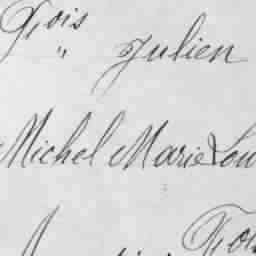 Fois
" Julien
Michel Marie Lou
Foi